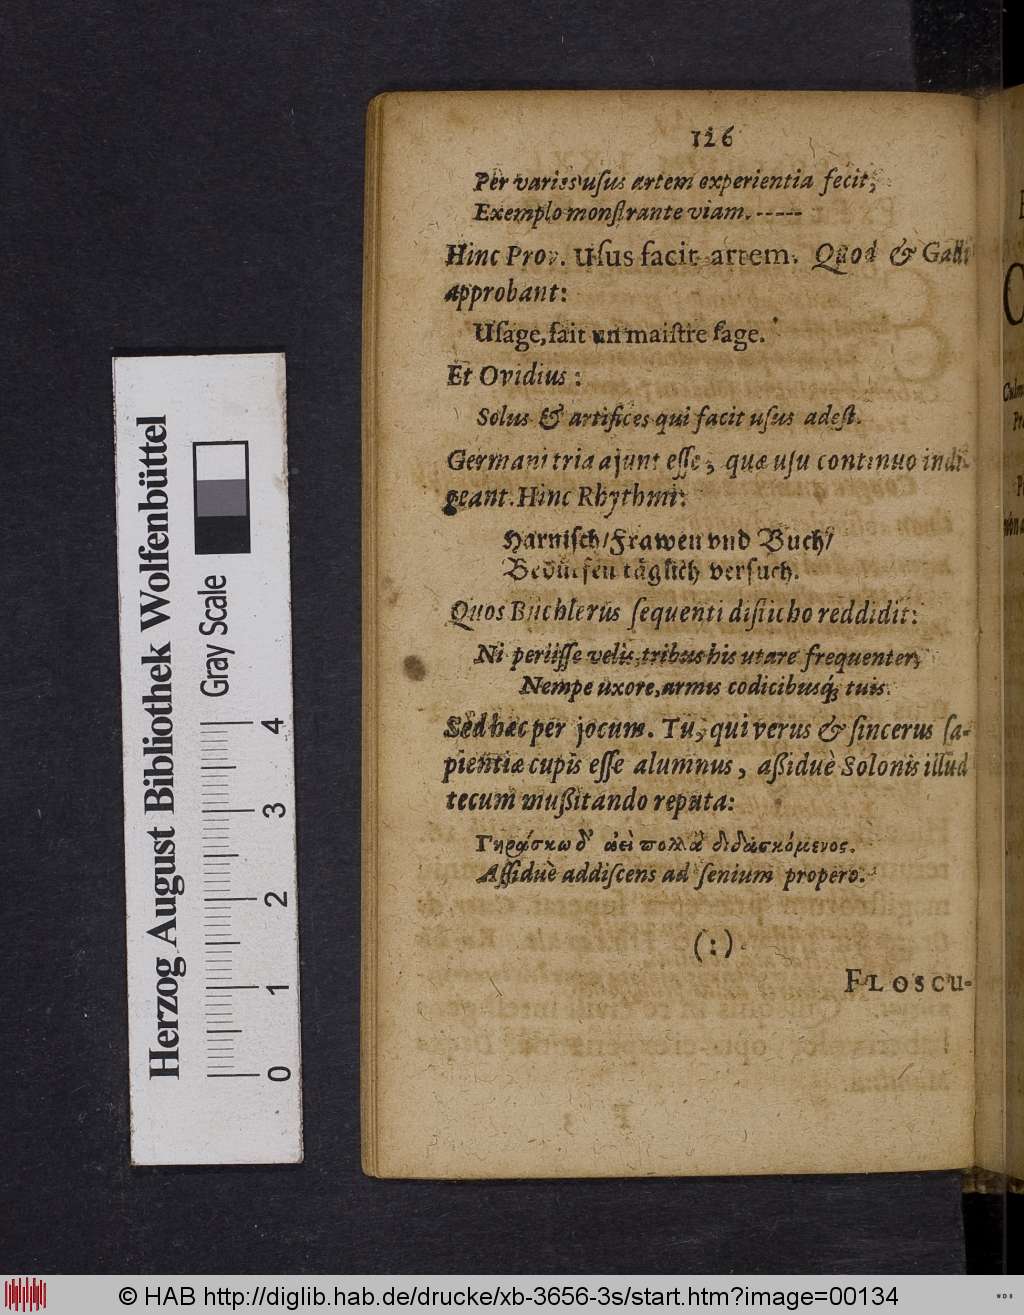 126
Per varios uſus artem experientia fecit,
Exemplo monſtrante viam. -----
Hinc Prov. Uſus facit artem. Quod & Galli
approbant:
Uſage, fait un maiſtre ſage.
Et Ovidius:
Solus & artifices qui facit uſus adeſt.
Germani tria ajunt eſſe, quæ uſu continuo indi-
geant. Hinc Rhythmi:
Harniſch/Frawen vnd Buch/
Bedürfen täglich verſuch.
Quos Buchlerus ſequenti diſticho reddidit:
Ni periiſſe velis, tribus his utare frequenter,
Nempe uxore, armis codicibusq́; tuis.
Sed hæc per jocum. Tu, qui verus & ſincerus ſa-
pientiæ cupis eſſe alumnus, aßiduè Solonis illud
tecum mußitando reputa:
Γηράσκω δ' ἀεὶ πολλὰ διδασκόμενος.
Aſſiduè addiſcens ad ſenium propero.
(:)
FLOSCU-
Herzog August Bibliothek Wolfenbüttel
Gray Scale
0 1 2 3 4
© HAB http://diglib.hab.de/drucke/xb-3656-3s/start.htm?image=00134